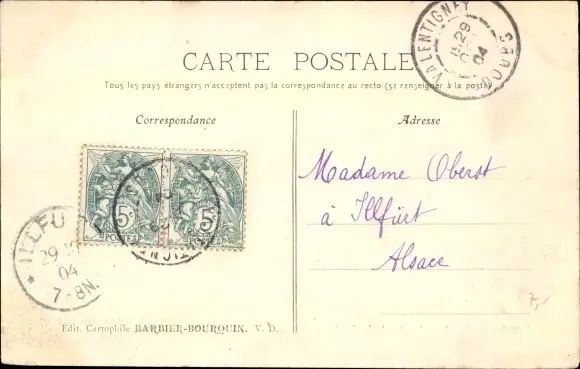 CARTE POSTALE
Tous les pays étrangers n'acceptent pas la correspondance au recto (se renseigner à la poste)
Correspondance
Adresse
VALENTIGNEY
DOUBS
29
04
5c
POSTES
5c
POSTES
Madame Oberst
à Illfürt
Alsace
ILLFU
29
04
7-8N.
7,-
Edit. Cartophile BARBIER-BOURQUIN. V. D.